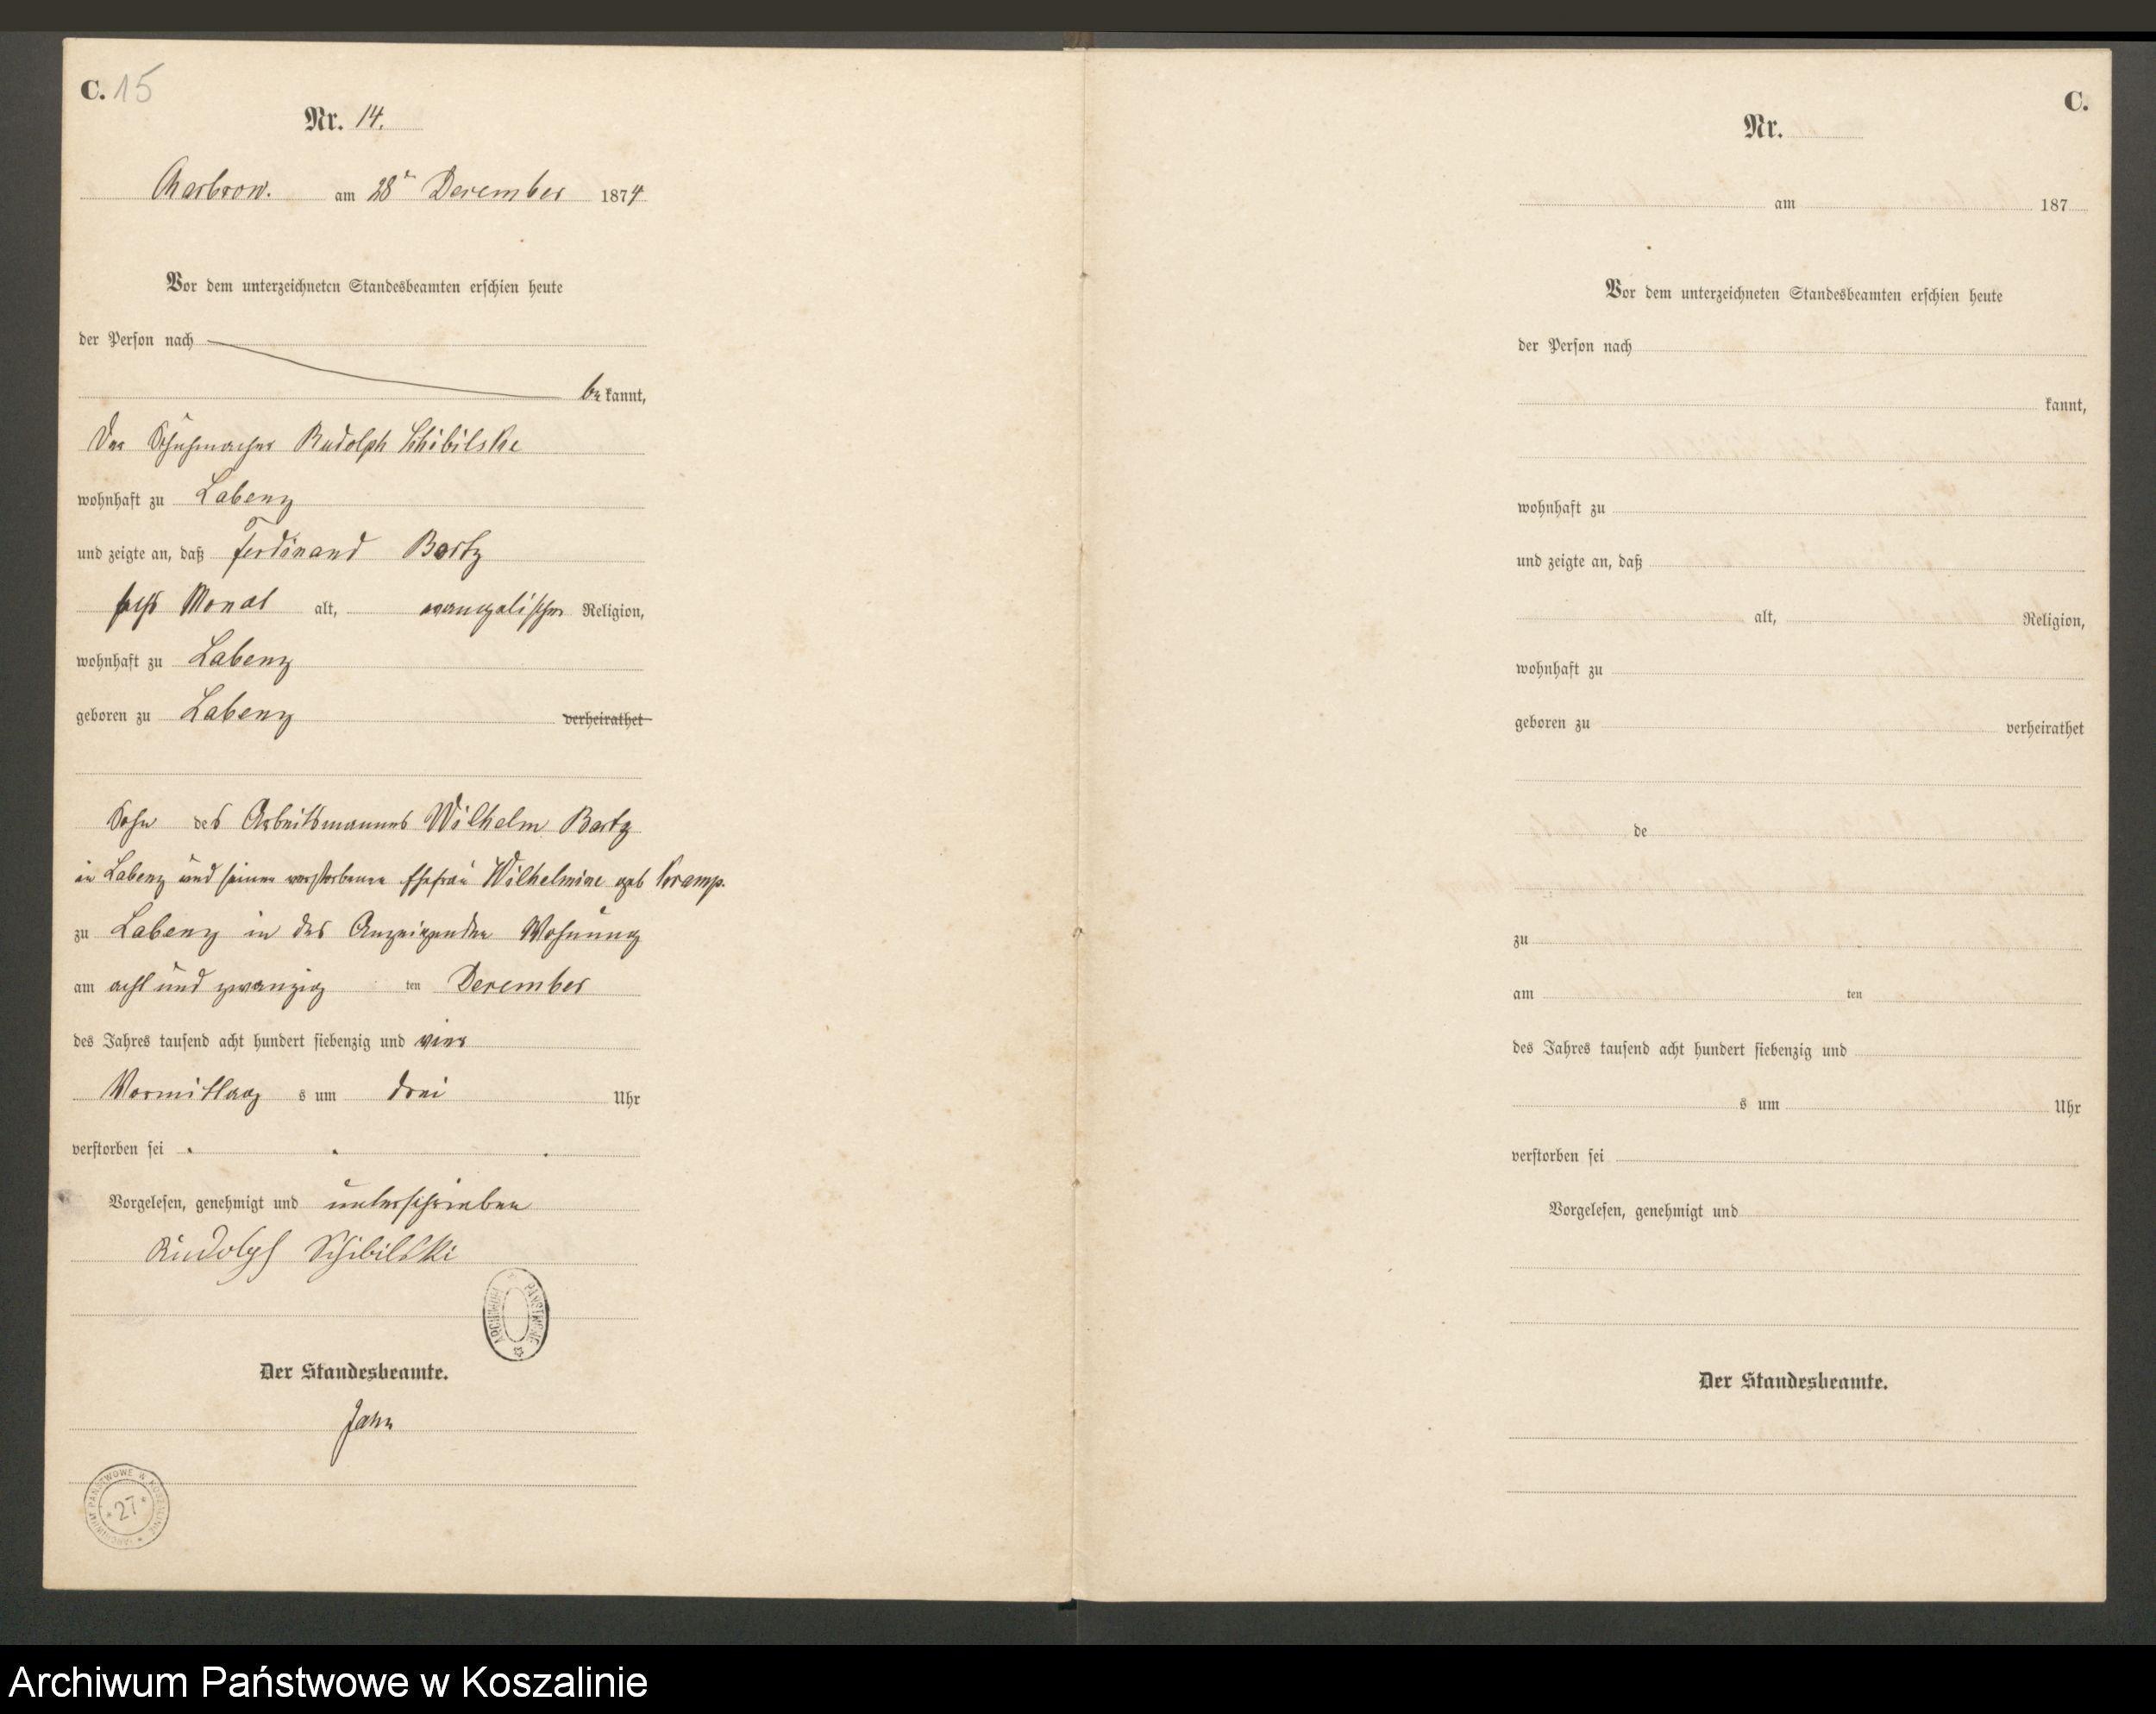 C. 15
Nr. 14.
Charbrow. am 28t December 1874
Vor dem unterzeichneten Standesbeamten erschien heute
der Person nach
bekannt,
Der Schuhmacher Rudolph Schibilske
wohnhaft zu Labenz
und zeigte an, daß Ferdinand Bartz
sechs Monat alt, evangelischer Religion,
wohnhaft zu Labenz
geboren zu Labenz verheirathet
Sohn des Arbeitsmannes Wilhelm Bartz
in Labenz und seiner verstorbenen Ehefrau Wilhelmine geb Kramp.
zu Labenz in des Anzeigenden Wohnung
am acht und zwanzig ten December
des Jahres tausend acht hundert siebenzig und vier
Vormittag s um drei Uhr
verstorben sei
Vorgelesen, genehmigt und unterschrieben
Rudolph Schibilski
ARCHIWUM PAŃSTWOWE
Der Standesbeamte.
Jahn
ARCHIWUM PAŃSTWOWE W KOSZALINIE
27
C.
Nr.
am 187
Vor dem unterzeichneten Standesbeamten erschien heute
der Person nach
kannt,
wohnhaft zu
und zeigte an, daß
alt, Religion,
wohnhaft zu
geboren zu verheirathet
de
zu
am ten
des Jahres tausend acht hundert siebenzig und
s um Uhr
verstorben sei
Vorgelesen, genehmigt und
Der Standesbeamte.
Archiwum Państwowe w Koszalinie